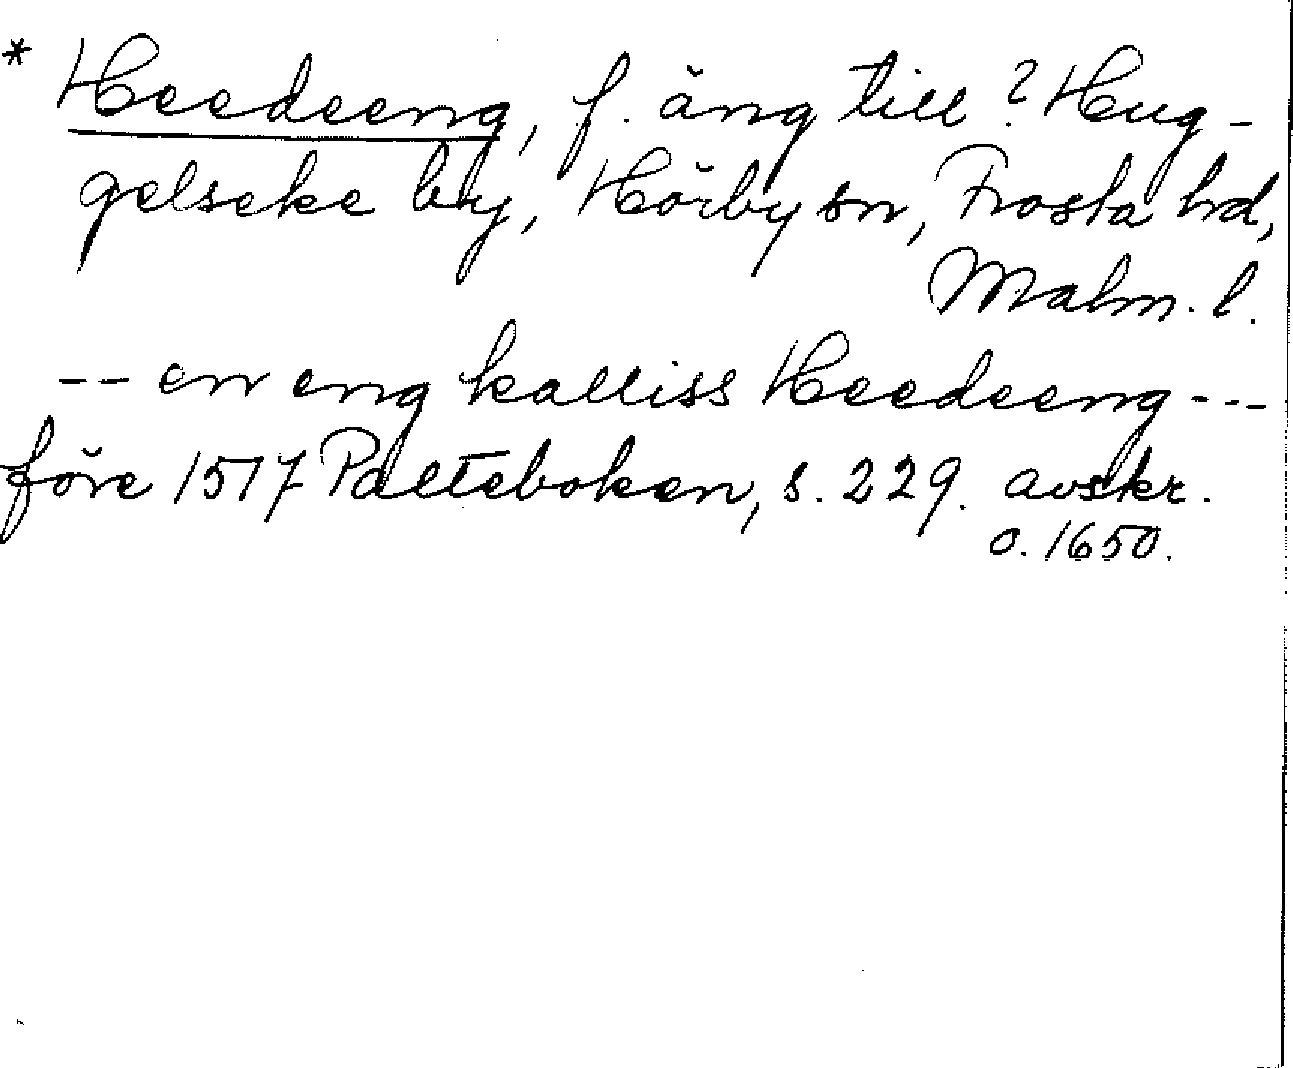 * Heedeeng, f. äng till ? Hug-
gelseke by, Hörby sn, Frosta hd,
Malm. l.
-- en eng kalliss Heedeeng ---
före 1517 Palteboken, s. 229. avskr.
o. 1650.